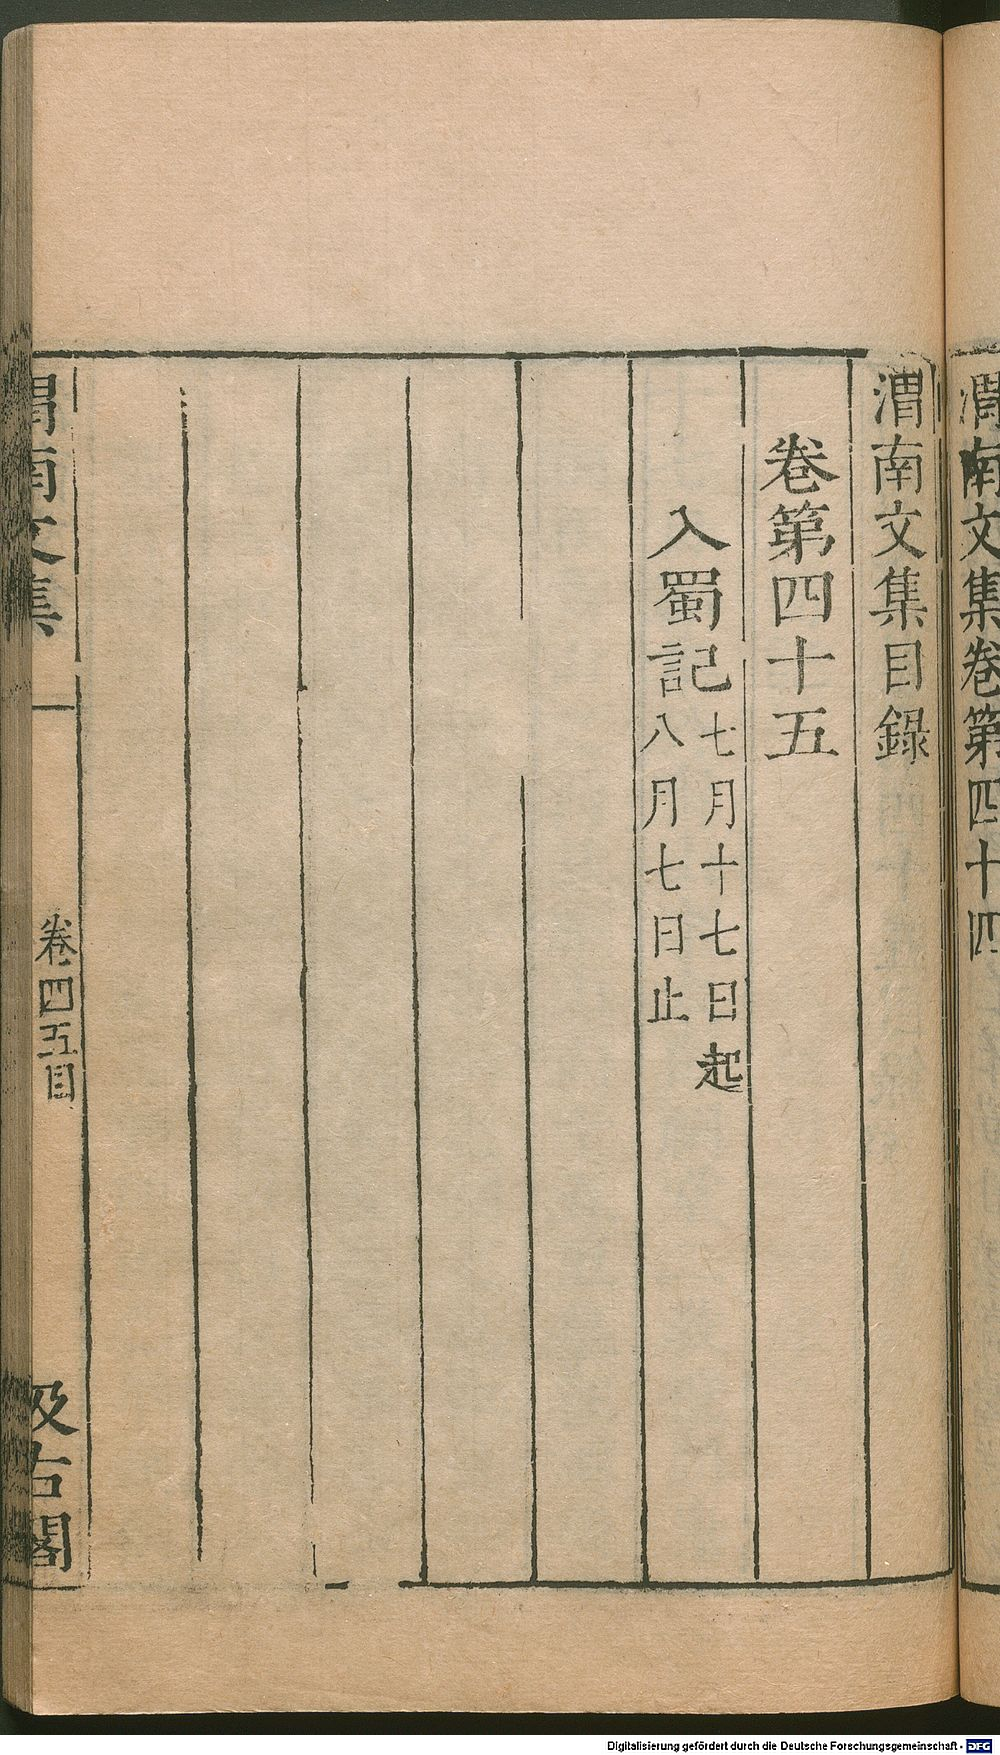 渭南文集卷第四十四
渭南文集目録
卷第四十五
入蜀記
七月十七日起
八月七日止
渭南文集
卷四五目
汲古閣
Digitalisierung gefördert durch die Deutsche Forschungsgemeinschaft - DFG